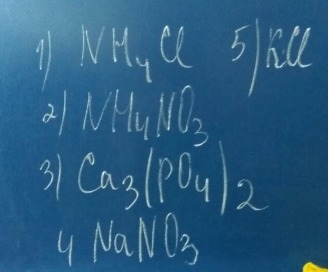 1) NH4Cl 5) KCl
2) NH4NO3
3) Ca3(PO4)2
4 NaNO3